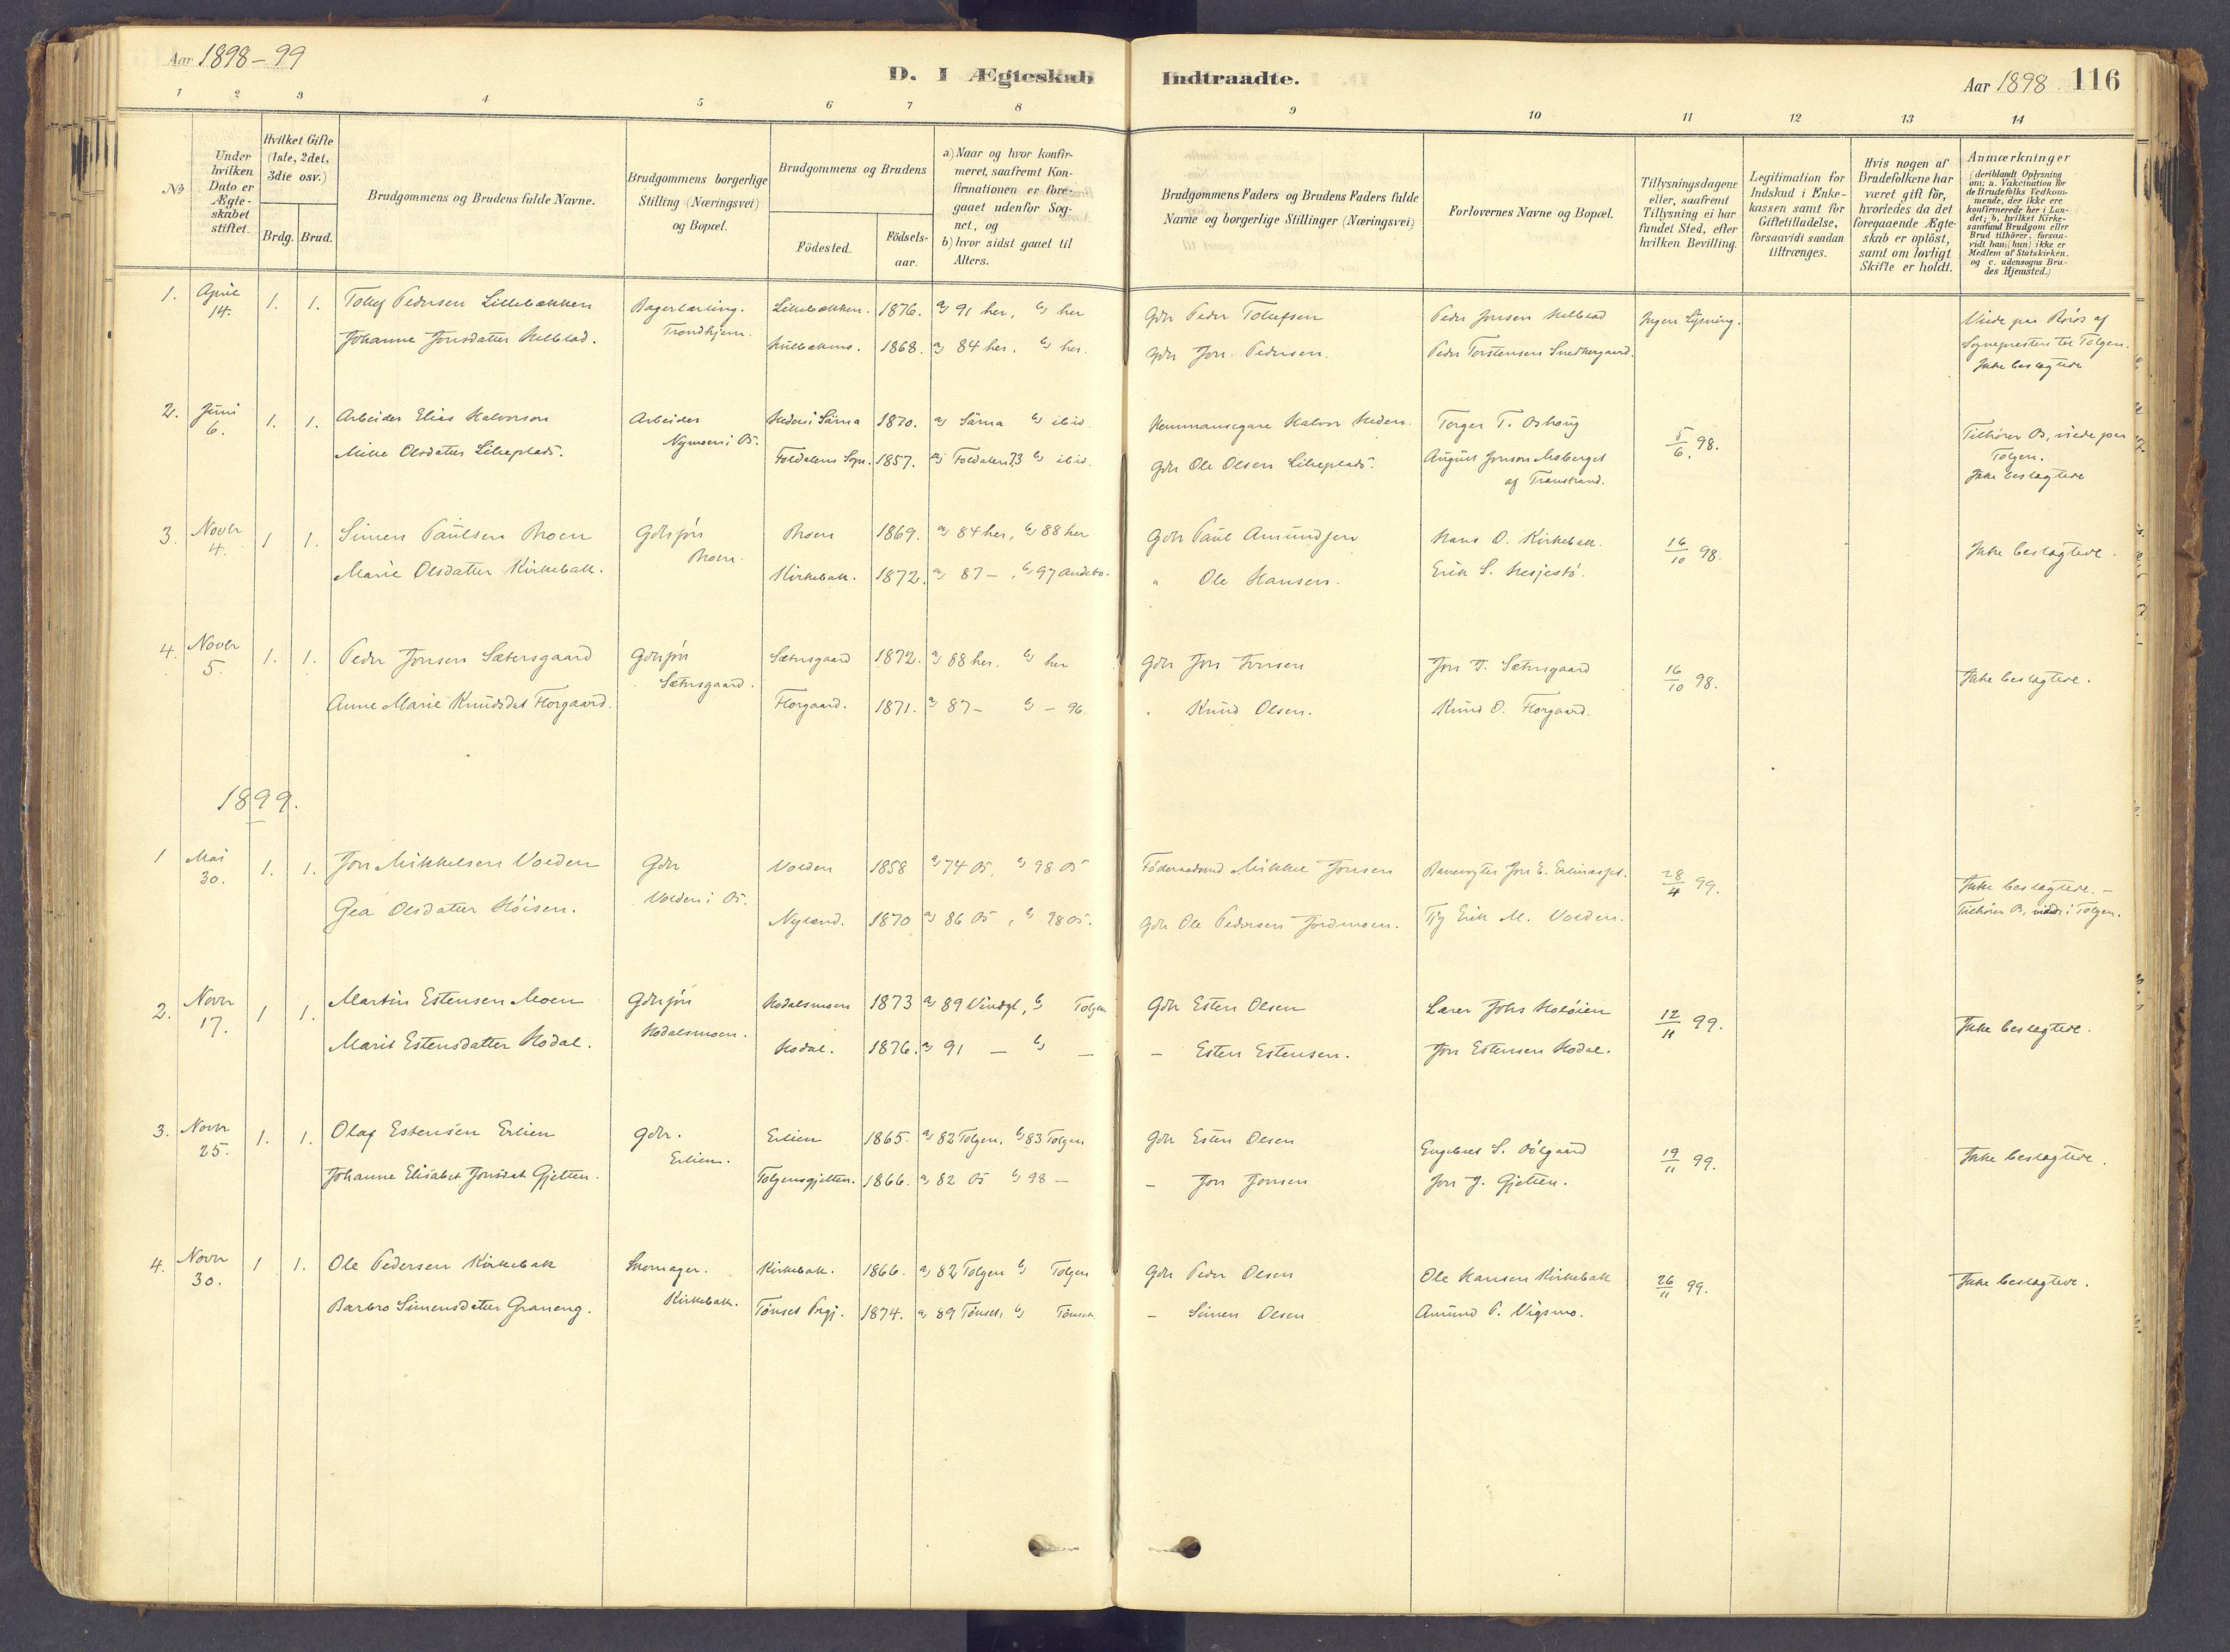 Aar 1898-99
D. I Ægteskab Indtraadte.
Aar 1898. 116
1 2 3 4 5 6 7 8 9 10 11 12 13 14
No
Under hvilken Dato er Ægteskabet stiftet.
Hvilket Gifte (1ste, 2det, 3die osv.)
Brdg. Brud.
Brudgommens og Brudens fulde Navne.
Brudgommens borgerlige Stilling (Næringsvei) og Bopæl.
Brudgommens og Brudens
Födested.
Födsels-aar.
a) Naar og hvor konfirmeret, saafremt Konfirmationen er foregaaet udenfor Sognet, og
b) hvor sidst gaaet til Alters.
Brudgommens Faders og Brudens Faders fulde Navne og borgerlige Stillinger (Næringsvei)
Forlovernes Navne og Bopæl.
Tillysningsdagene eller, saafremt Tillysning ei har fundet Sted, efter hvilken Bevilling.
Legitimation for Indskud i Enkekassen samt for Giftetilladelse, forsaavidt saadan tiltrænges.
Hvis nogen af Brudefolkene har været gift för, hvorledes da det foregaaende Ægteskab er oplöst, samt om lovligt Skifte er holdt.
Anmærkninger (deriblandt Oplysning om: a. Vakcination for de Brudefolks Vedkommende, der ikke ere konfirmerede her i Landet; b. hvilket Kirkesamfund Brudgom eller Brud tilhörer, forsaavidt han (hun) ikke er Medlem af Statskirken, og c. udensogns Brudes Hjemsted.)
1. April 14. 1. 1. Tollef Pedersen Lillebakken Bagerlærling. Trondhjem. Lillebakken. 1876. a) 91 her, b) her Gdr Peder Tollefsen Peder Jonsen Ingen Lysning. Viede paa Röros af
Johanne Jonsdatter 1868. a) 84 her, b) her. Gdr Jon Pedersen. Peder Torstensen Snedkergaard. Sognepresten til Tolgen.
Ikke beslægtede
2. Juni 6. 1. 1. Arbeider Elias Halvorson Arbeider Heden i Särna 1870. a) Särna b) ibid. Hemmansegare Halvor Heden. Torger T. Oshoug 5/6 98. Tilhörer Os, viede paa
Nymoen i Os. Tolgen.
Mille Olsdatter Lilleplads. Foldalens Sogn. 1857. a) Foldalen 73 b) ibid. Gdr Ole Olsen Lilleplads. August Jonson Moberget Ikke beslægtede
af Transtrand.
3. Novbr 4. 1 1. Simen Paulsen Moen Gdrsøn Moen. Moen 1869. a) 84 her, b) 88 her Gdr Paul Amundsen Hans O. Kirkebak. 16/10 98. Ikke beslægtede.
Marie Olsdatter Kirkebak. Kirkebak. 1872. a) 87 -, b) 97 Andebo. " Ole Hansen. Erik S.
4. Novbr 5. 1. 1. Peder Jonsen Sætersgaard Gdrsøn Sætersgaard. Sætersgaard 1872. a) 88 her. b) her Gdr Jon Jonsen Jon J. Sætersgaard 16/10 98. Ikke beslægtede.
Anne Marie Knudsdat Florgaard. Florgaard. 1871. a) 87 - b) - 96. " Knud Olsen. Knud O. Florgaard.
1899.
1 Mai 30. 1. 1. Jon Mikkelsen Volden Gdr Volden i Os. Volden 1858 a) 74 Os, b) 98 Os Föderaadsmd Mikkel Jonsen Banevogter Jon E. 28/4 99. Ikke beslægtede. -
Gea Olsdatter Höisen. Nyland. 1870 a) 86 Os, b) 98 Os. Gdr Ole Pedersen Jordmoen. Erik M. Volden. Tilhörer Os, viede i Tolgen.
2. Novbr 17. 1 1. Martin Estensen Moen Gdrsøn Hodalsmoen. Hodalsmoen 1873 a) 89 Vindgl, b) Tolgen Gdr Esten Olsen Lærer Johs Holöien 12/11 99. Ikke beslægtede.
Marit Estensdatter Hodal. Hodal. 1876. a) 91 - b) - - Esten Estensen. Jon Estensen Hodal.
3. Novbr 25. 1. 1. Olaf Estensen Erlien Gdr. Erlien. Erlien 1865. a) 82 Tolgen, b) 83 Tolgen Gdr Esten Olsen Engebret S. 19/11 99. Ikke beslægtede.
Johanne Elisabet Jonsdat Gjelten. Tolgensgjelten. 1866. a) 82 Os b) 98 - - Jon Jonsen Jon J. Gjelten.
4. Novbr 30. 1 1. Ole Pedersen Kirkebak Skomager. Kirkebak. Kirkebak. 1866. a) 82 Tolgen b) Tolgen Gdr Peder Olsen Ole Hansen Kirkebak 26/11 99. Ikke beslægtede.
Barbro Simensdatter Graneng. Tönset Prgj. 1874. a) 89 Tönset, b) Tönset. - Simen Olsen Amund P. Vigsmo.